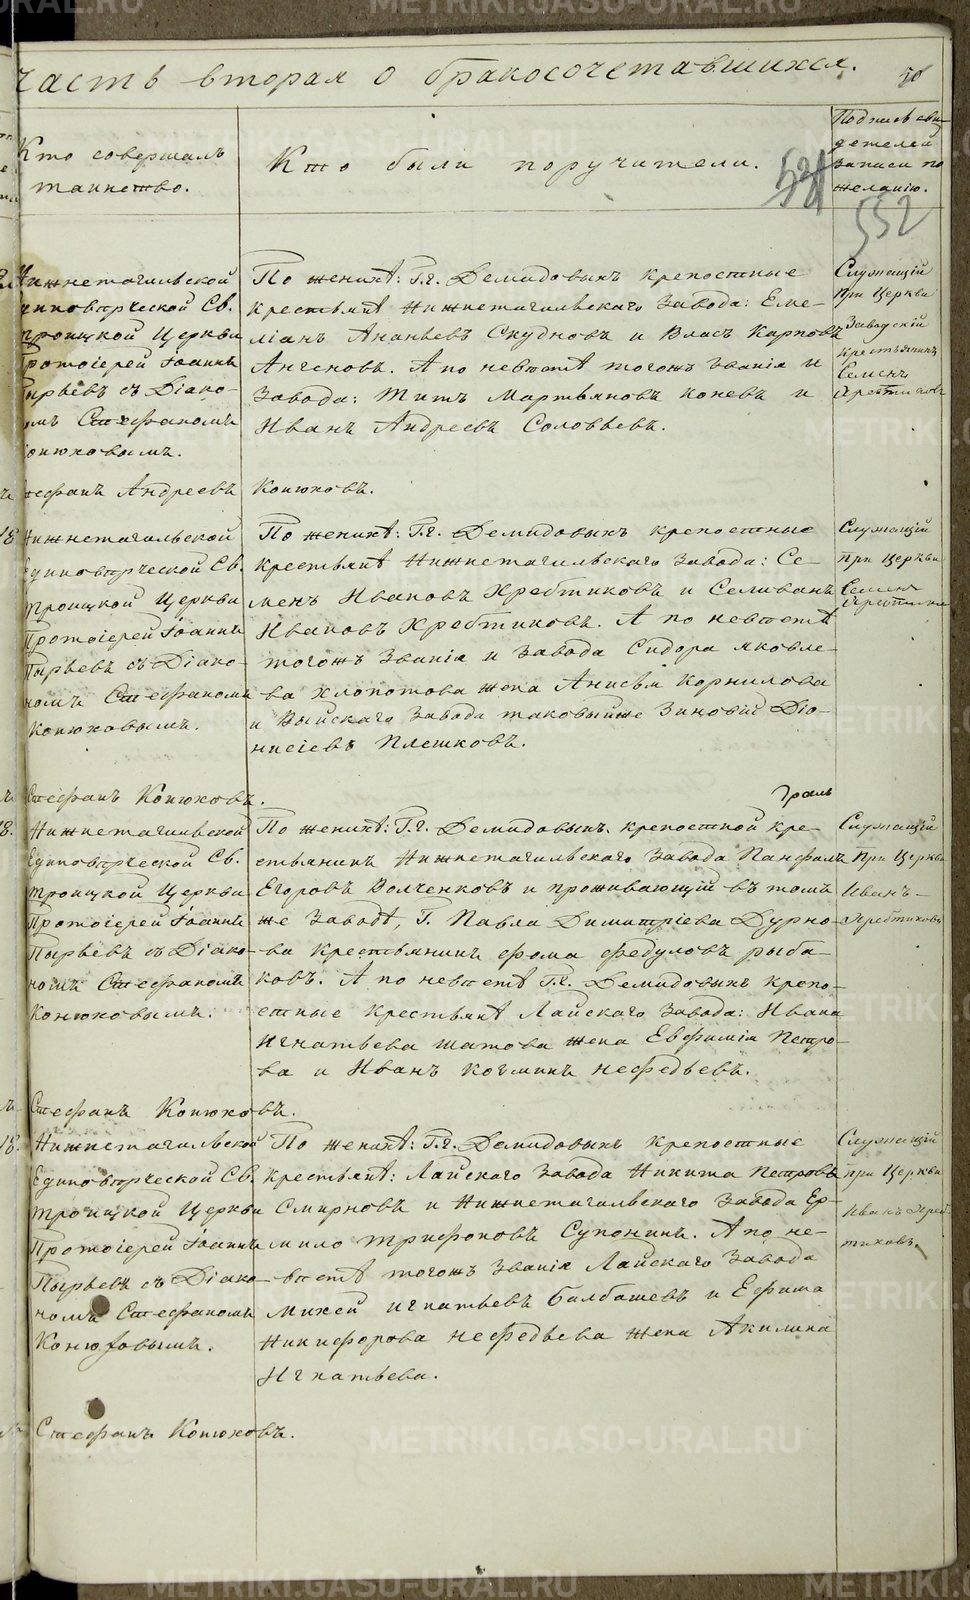 часть вторая о бракосочетавшихся.
Кто совершалъ
таинство.
Кто были поручители.
Подпись сви-
детелей
записи по
желанію.
552
Нижнетагильской
Единоверческой Св.
Троицкой Церкви
Протоіерей Іоаннъ
Пырьевъ съ Діако-
номъ Стефаномъ
Конюховымъ.
По женихѣ: Г.г. Демидовыхъ крепостные
крестьянѣ Нижнетагильскаго Завода: Еме-
ліанъ Ананьевъ Скудновъ и Власъ Карповъ
А по невѣстѣ тогожъ званія и
Завода: Титъ Мартьяновъ Коневъ и
Иванъ Андреевъ Соловьевъ.
Служащій
при Церкви
Заводскій
крестьянинъ
Семенъ
Стефанъ Андреевъ Конюховъ.
18
Нижнетагильской
Единоверческой Св.
Троицкой Церкви
Протоіерей Іоаннъ
Пырьевъ съ Діако-
номъ Стефаномъ
Конюховымъ.
По женихѣ: Г.г. Демидовыхъ крепостные
крестьянѣ Нижнетагильскаго Завода: Се-
менъ Ивановъ Хребтиковъ и Селиванъ
Ивановъ Хребтиковъ. А по невѣстѣ
тогожъ Званія и Завода Сидора Яковле-
ва Хлопотова жена Анисья Корнилова
и Выйскаго Завода таковыйже Зиновій Діо-
нисіевъ Плешковъ.
Служащій
при Церкви
Семенъ
Стефанъ Конюховъ.
18.
Нижнетагильской
Единоверческой Св.
Троицкой Церкви
Протоіерей Іоаннъ
Пырьевъ съ Діако-
номъ Стефаномъ
Конюховымъ.
По женихѣ: Г.г. Демидовыхъ крепостной кре-
стьянинъ Нижнетагильскаго Завода
Егоровъ Волченковъ и проживающій въ томъ
же Заводѣ, Г. Павла Димитріева Дурно-
ва Крестьянинъ Фома Федуловъ рыба-
ковъ. А по невѣстѣ Г.г. Демидовыхъ крепо-
стные Крестьянѣ Лайскаго Завода: Ивана
Игнатьева Шатова жена Евфимія Петро-
ва и Иванъ Козминъ Нефедьевъ.
Служащій
при Церкви
Иванъ
Хребтиковъ
Стефанъ Конюховъ.
18.
Нижнетагильской
Единоверческой Св.
Троицкой Церкви
Протоіерей Іоаннъ
Пырьевъ съ Діако-
номъ Стефаномъ
Конюховымъ.
По женихѣ: Г.г. Демидовыхъ крепостные
Крестьянѣ: Лайскаго Завода Никита Петровъ
Смирновъ и Нижнетагильскаго Завода Ер-
мило Трифоновъ Супонинъ. А по не-
вѣстѣ тогожъ Званія Лайскаго Завода
Михей Игнатьевъ Балбашевъ и Ефима
Никифорова Нефедьева жена Акилина
Игнатьева.
Служащій
при Церкви
Иванъ Хреб-
тиковъ.
Стефанъ Конюховъ.
METRIKI.GASO-URAL.RU